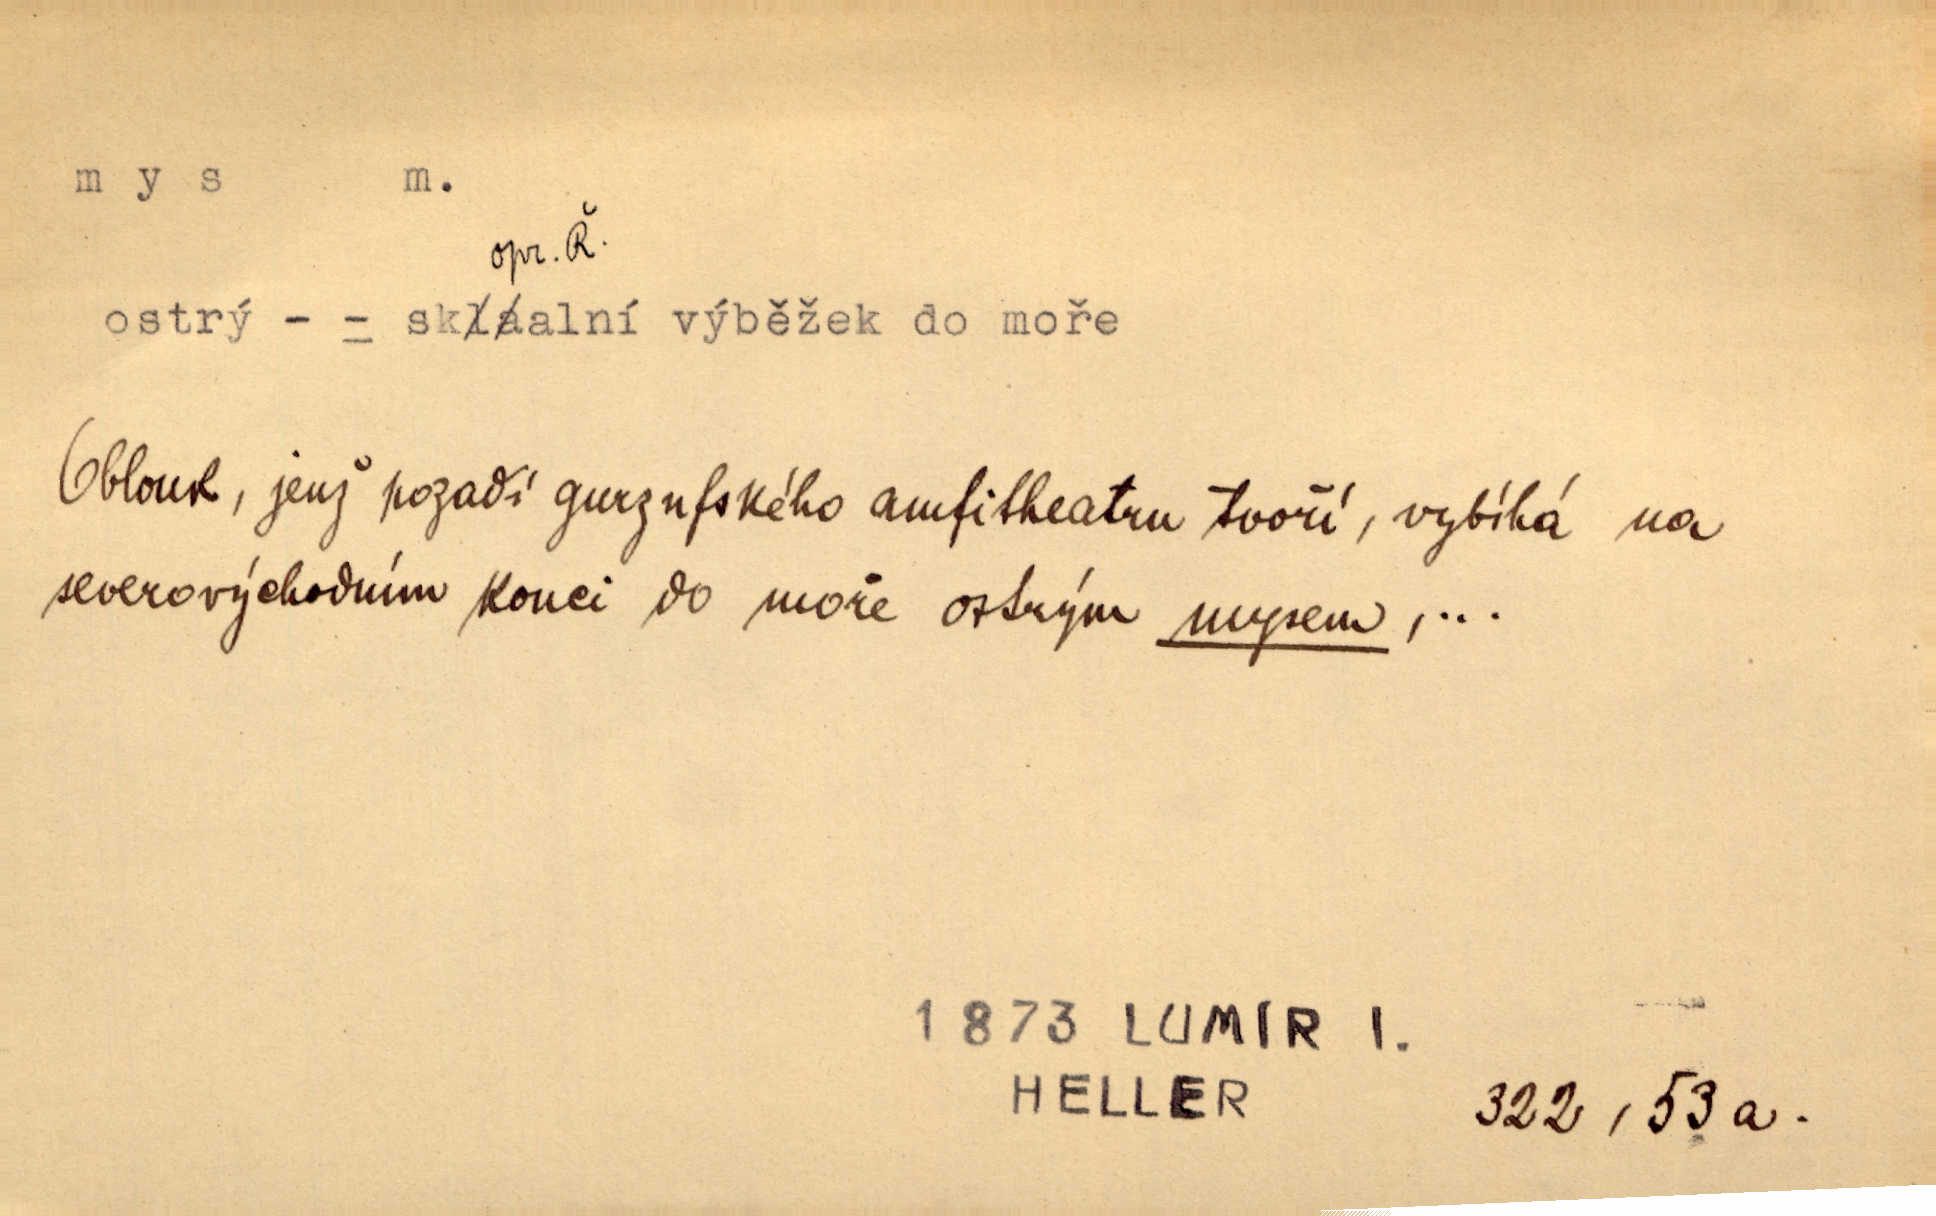 mys m.
opr. Ř.
ostrý - - skláalní výběžek do moře
Oblouk, jenž pozadí gurzufského amfitheatru tvoří, vybíhá na
severovýchodním konci do moře ostrým mysem, ...
1873 LUMÍR I.
HELLER 322, 53 a.